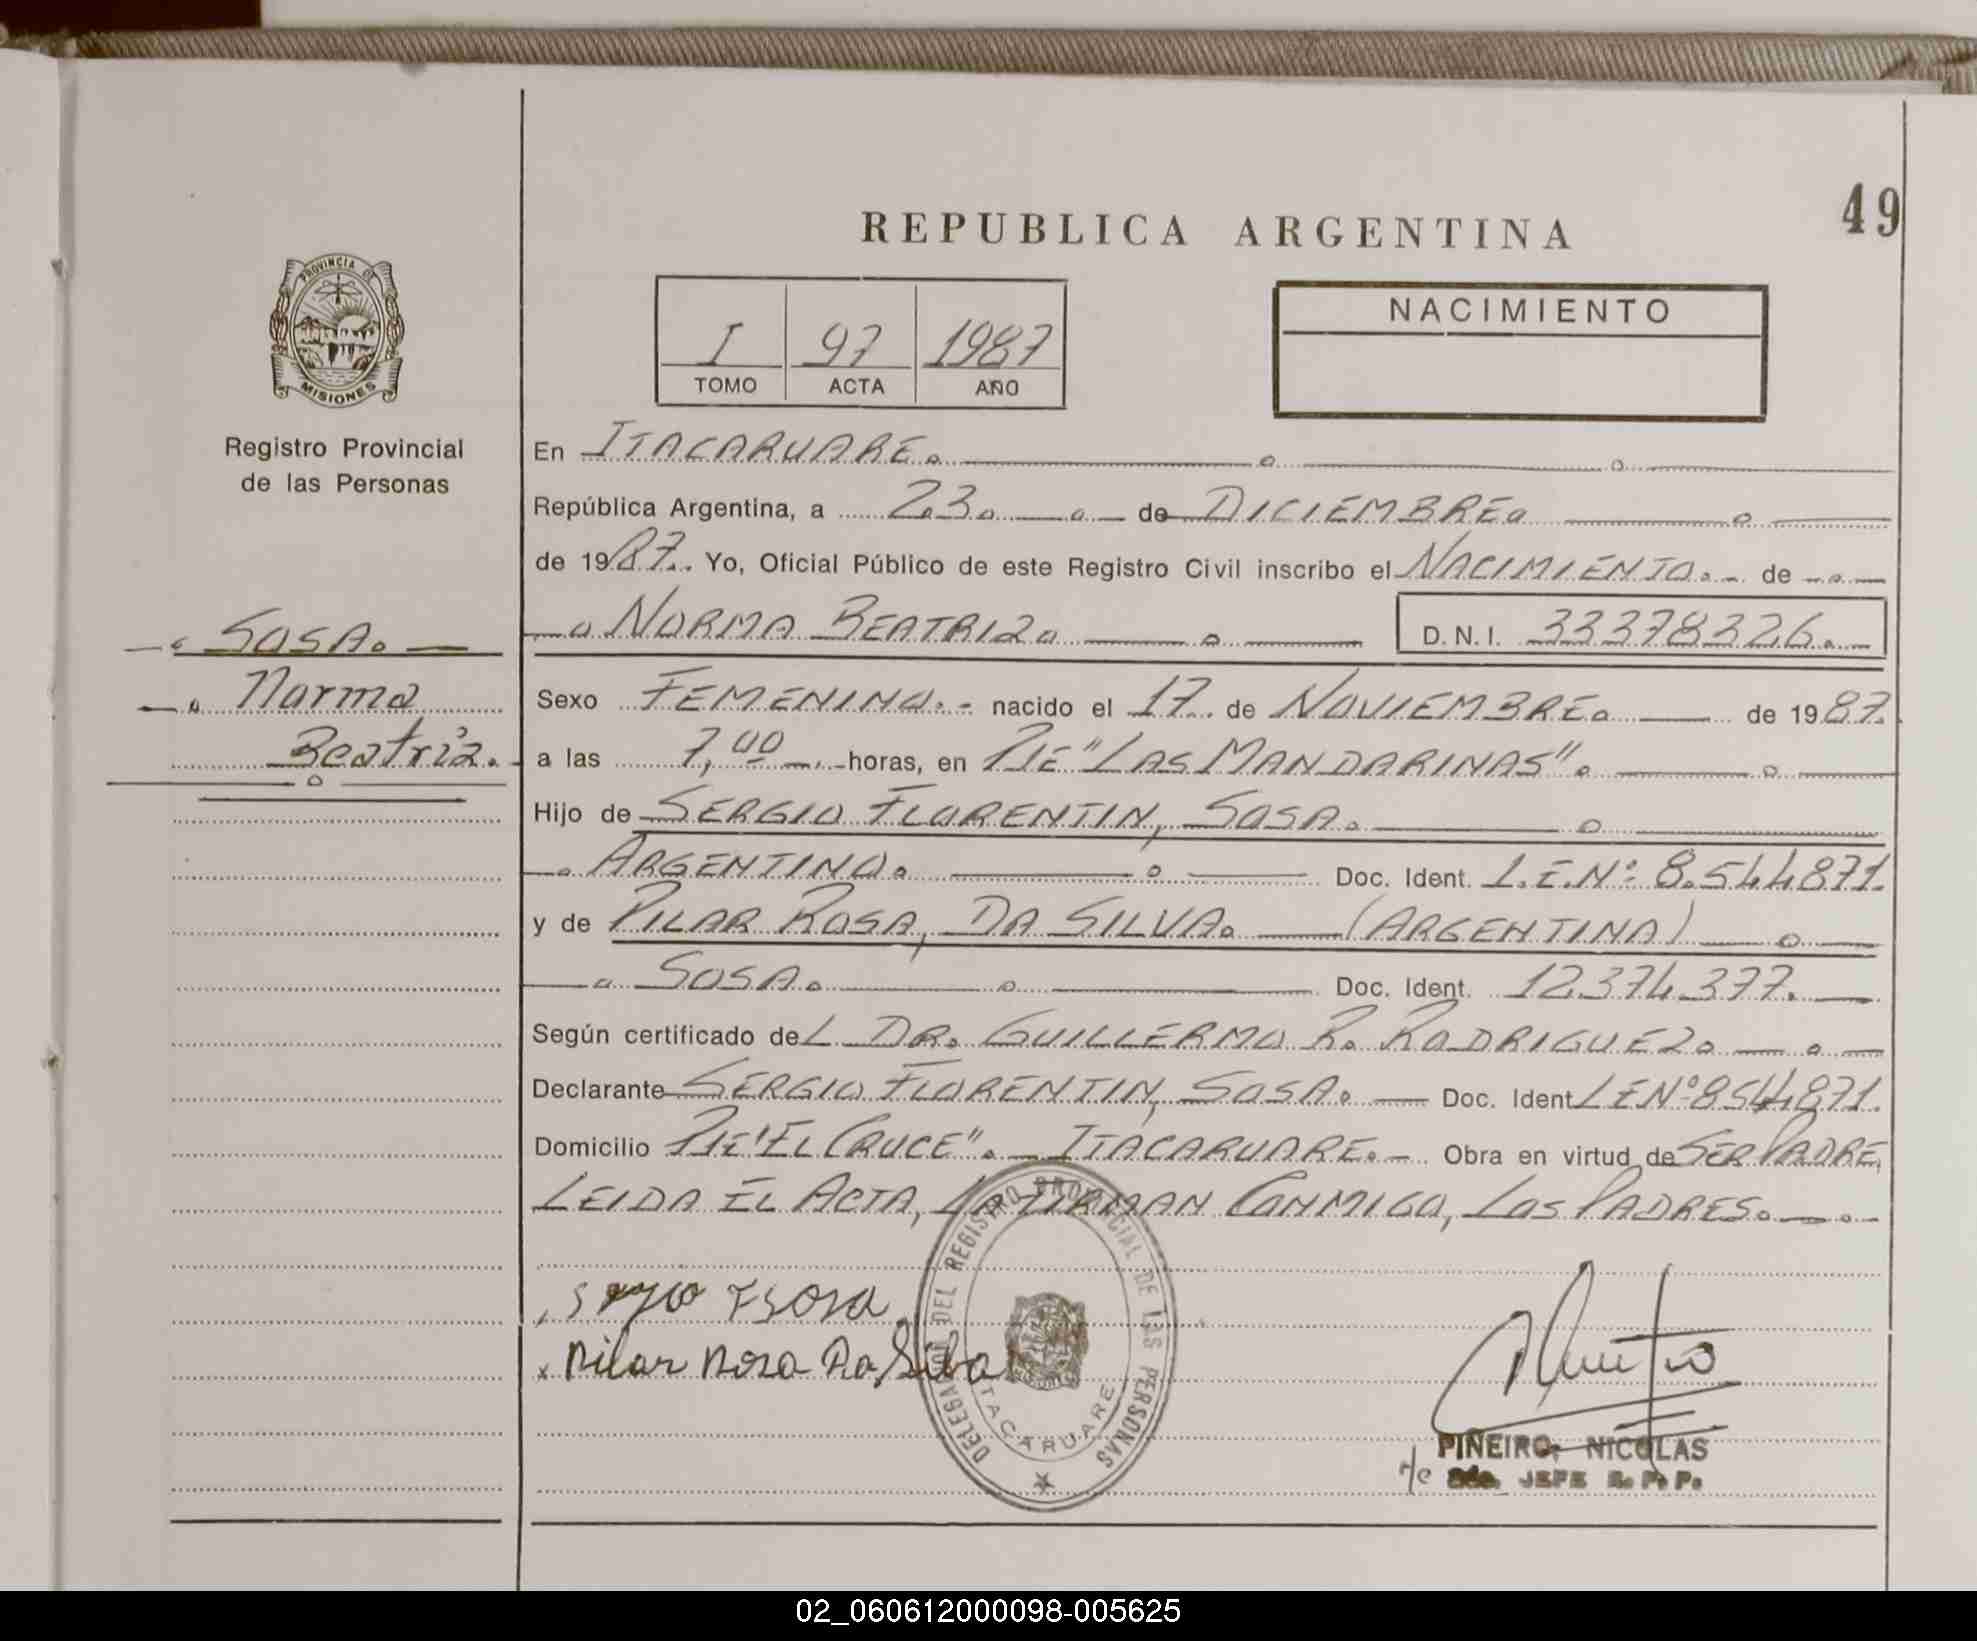 49
REPUBLICA ARGENTINA
PROVINCIA DE
MISIONES
Registro Provincial
de las Personas
I 97 1987
TOMO ACTA AÑO
NACIMIENTO
En ITACARUARE.
República Argentina, a 23. de DICIEMBRE
de 1987. Yo, Oficial Público de este Registro Civil inscribo el NACIMIENTO. de
NORMA BEATRIZ D.N.I. 33378326.
SOSA.
Norma
Beatriz.
Sexo FEMENINO. nacido el 17. de NOVIEMBRE. de 1987.
a las 7,00 horas, en PJE "LAS MANDARINAS".
Hijo de SERGIO FLORENTIN, SOSA.
ARGENTINO. Doc. Ident. L.E.Nº: 8.544871.
y de PILAR ROSA, DA SILVA. (ARGENTINA)
SOSA. Doc. Ident. 12.374.377.
Según certificado deL DR. GUILLERMO R. RODRIGUEZ.
Declarante SERGIO FLORENTIN, SOSA. Doc. Ident LENº8544871.
Domicilio PJE "EL CRUCE". ITACARUARE. Obra en virtud de SER PADRE,
LEIDA EL ACTA, LA FIRMAN CONMIGO, LOS PADRES.
Sergio F Sosa
x Pilar Rosa Da Silva
DELEGACION DEL REGISTRO PROVINCIAL DE LAS PERSONAS
ITACARUARE
PIÑEIRO, NICOLAS
JEFE R. P. P.
02_060612000098-005625